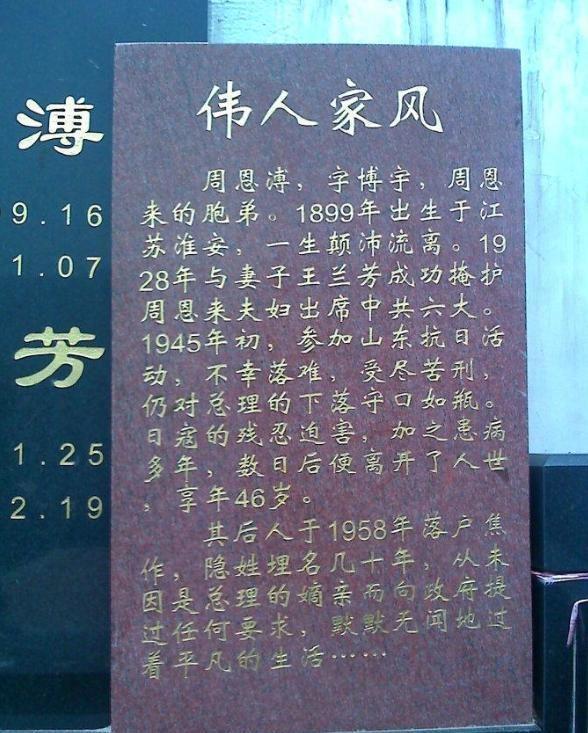 溥
9.16
1.07
芳
1.25
2.19
伟人家风
周恩溥，字博宇，周恩
来的胞弟。1899年出生于江
苏淮安，一生颠沛流离。19
28年与妻子王兰芳成功掩护
周恩来夫妇出席中共六大。
1945年初，参加山东抗日活
动，不幸落难，受尽苦刑，
仍对总理的下落守口如瓶。
日寇的残忍迫害，加之患病
多年，数日后便离开了人世
，享年46岁。
其后人于1958年落户焦
作，隐姓埋名几十年，从未
因是总理的嫡亲而向政府提
过任何要求，默默无闻地过
着平凡的生活……